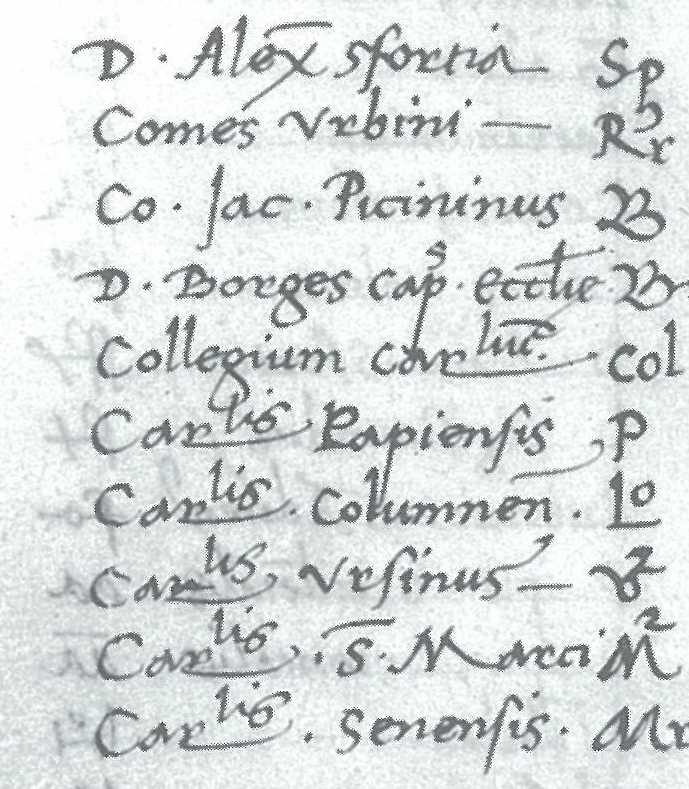 D. Alex̄ sfortia — Sp
Comes Vrbini — Rr
Co. Jac. Picininus B
D. Borges cap^s. Ecclie B
Collegium Car^liu. Col
Car^lis Papiensis P
Car^lis. Columnen̄. Lo
Car^lis Vrsinus — V²
Car^lis. S. Marci M²
Car^lis. Senensis. Mr